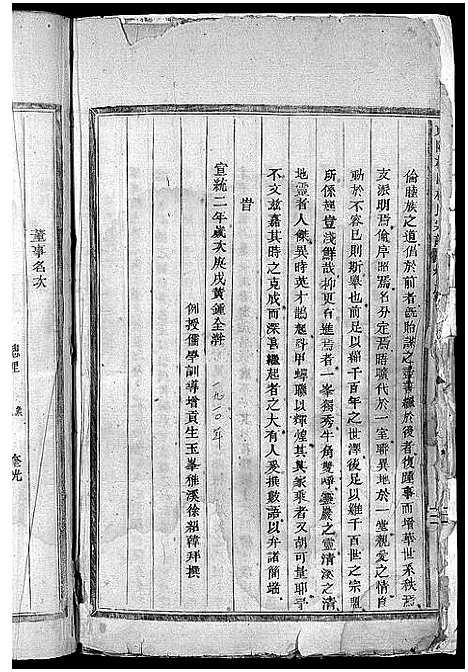 倫睦族之道倡於前者既貽謀之盡善繼於後者復踵事而增華世系秩焉
支派明焉倫序昭焉名分定焉晤曠代於一室聯異地於一堂親愛之情自
動於不容已則斯舉也前足以綿千百年之世澤後足以維千百世之宗
所係越豈淺鮮哉抑更有進焉者一峯獨秀牛角雙崢靈巖之靈清溪之清
地靈者人傑異時英才鵲起科甲蟬聯以輝煌其家乘者又胡可量耶予
不文茲嘉其時之克成而深喜繼起者之大有人爰撰數語以弁諸簡端
旹
宣統二年歲次庚戌黃鍾全澣
例授儒學訓導增貢生玉峯雅溪徐紹韓拜撰
一九一〇年
董事名次
總理
奎光